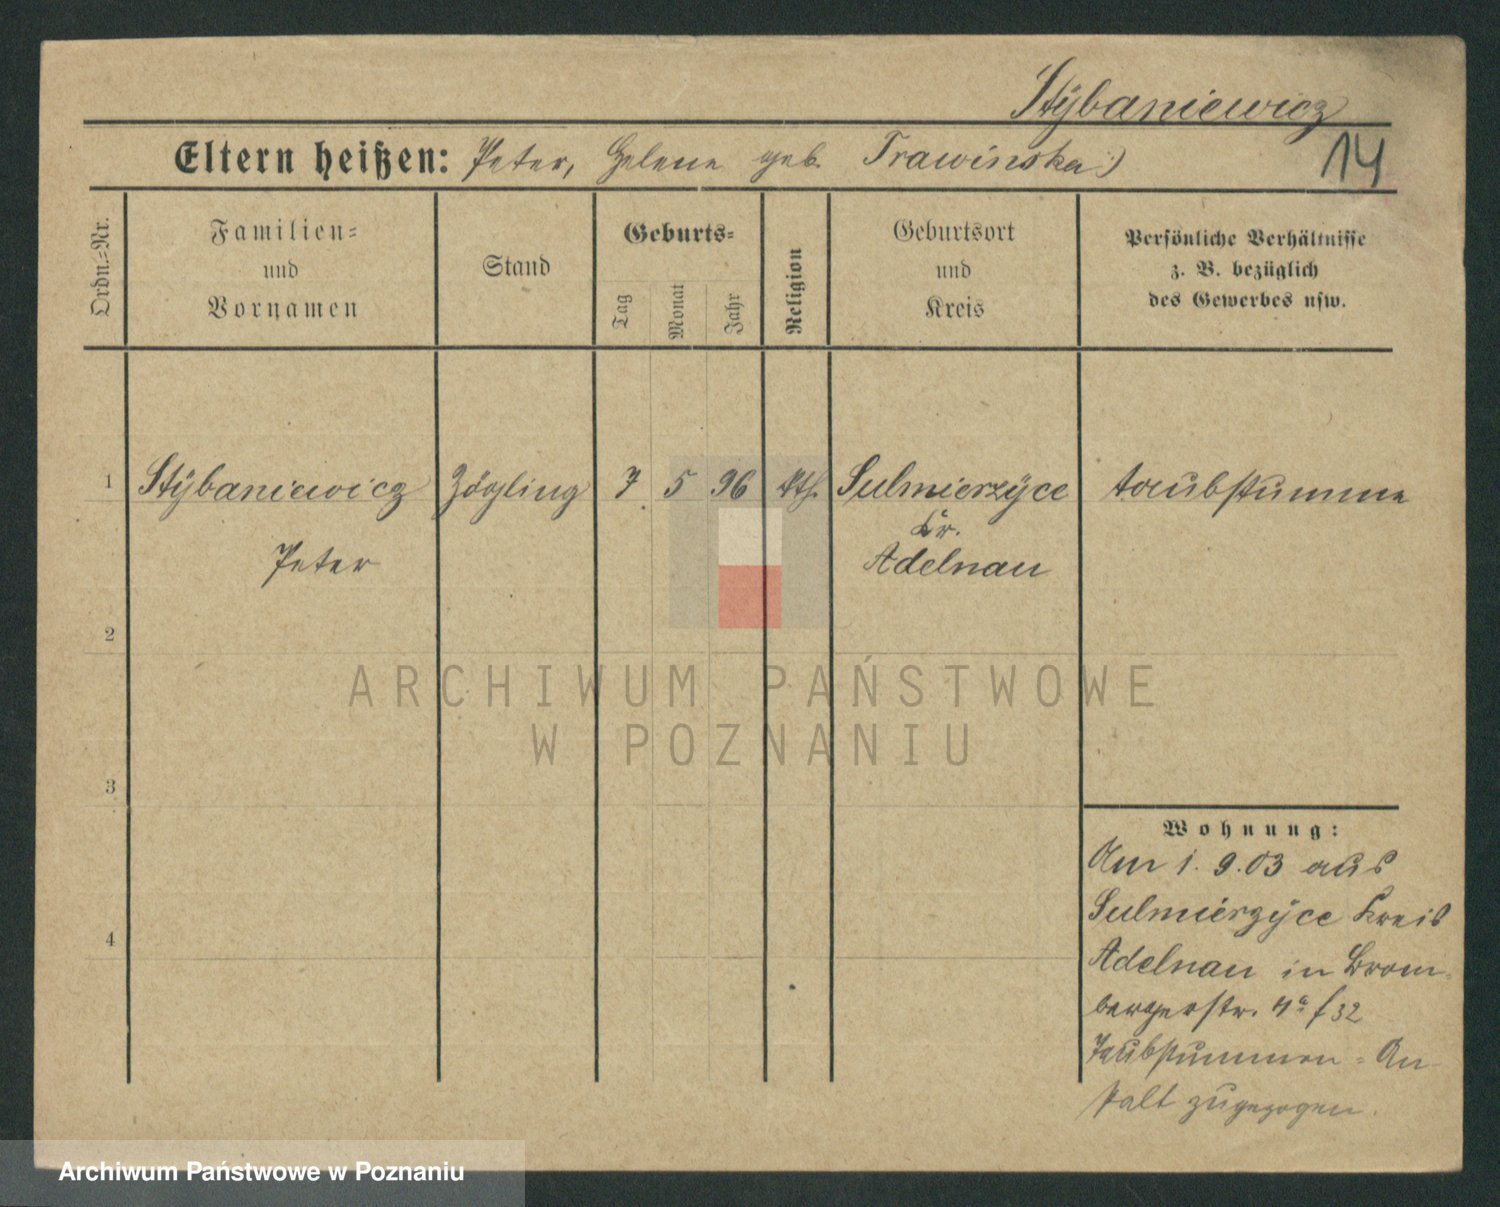 Stÿbaniewicz
Eltern heißen: Peter, Helene geb. Trawinska)
14
Ordn.-Nr.
Familien-
und
Vornamen
Stand
Geburts-
Tag
Monat
Jahr
Religion
Geburtsort
und
Kreis
Persönliche Verhältnisse
z. B. bezüglich
des Gewerbes usw.
1 Stÿbaniewicz Zögling 7 5 96 kth. Sulmierzÿce taubstumm
Kr.
Peter Adelnau
2
ARCHIWUM PAŃSTWOWE
W POZNANIU
3
Wohnung:
Am 1. 9. 03 aus
Sulmierzÿce Kreis
4
Adelnau in Brom-
bergerstr. 4a f 32
Taubstummen-An-
stalt zugezogen.
Archiwum Państwowe w Poznaniu